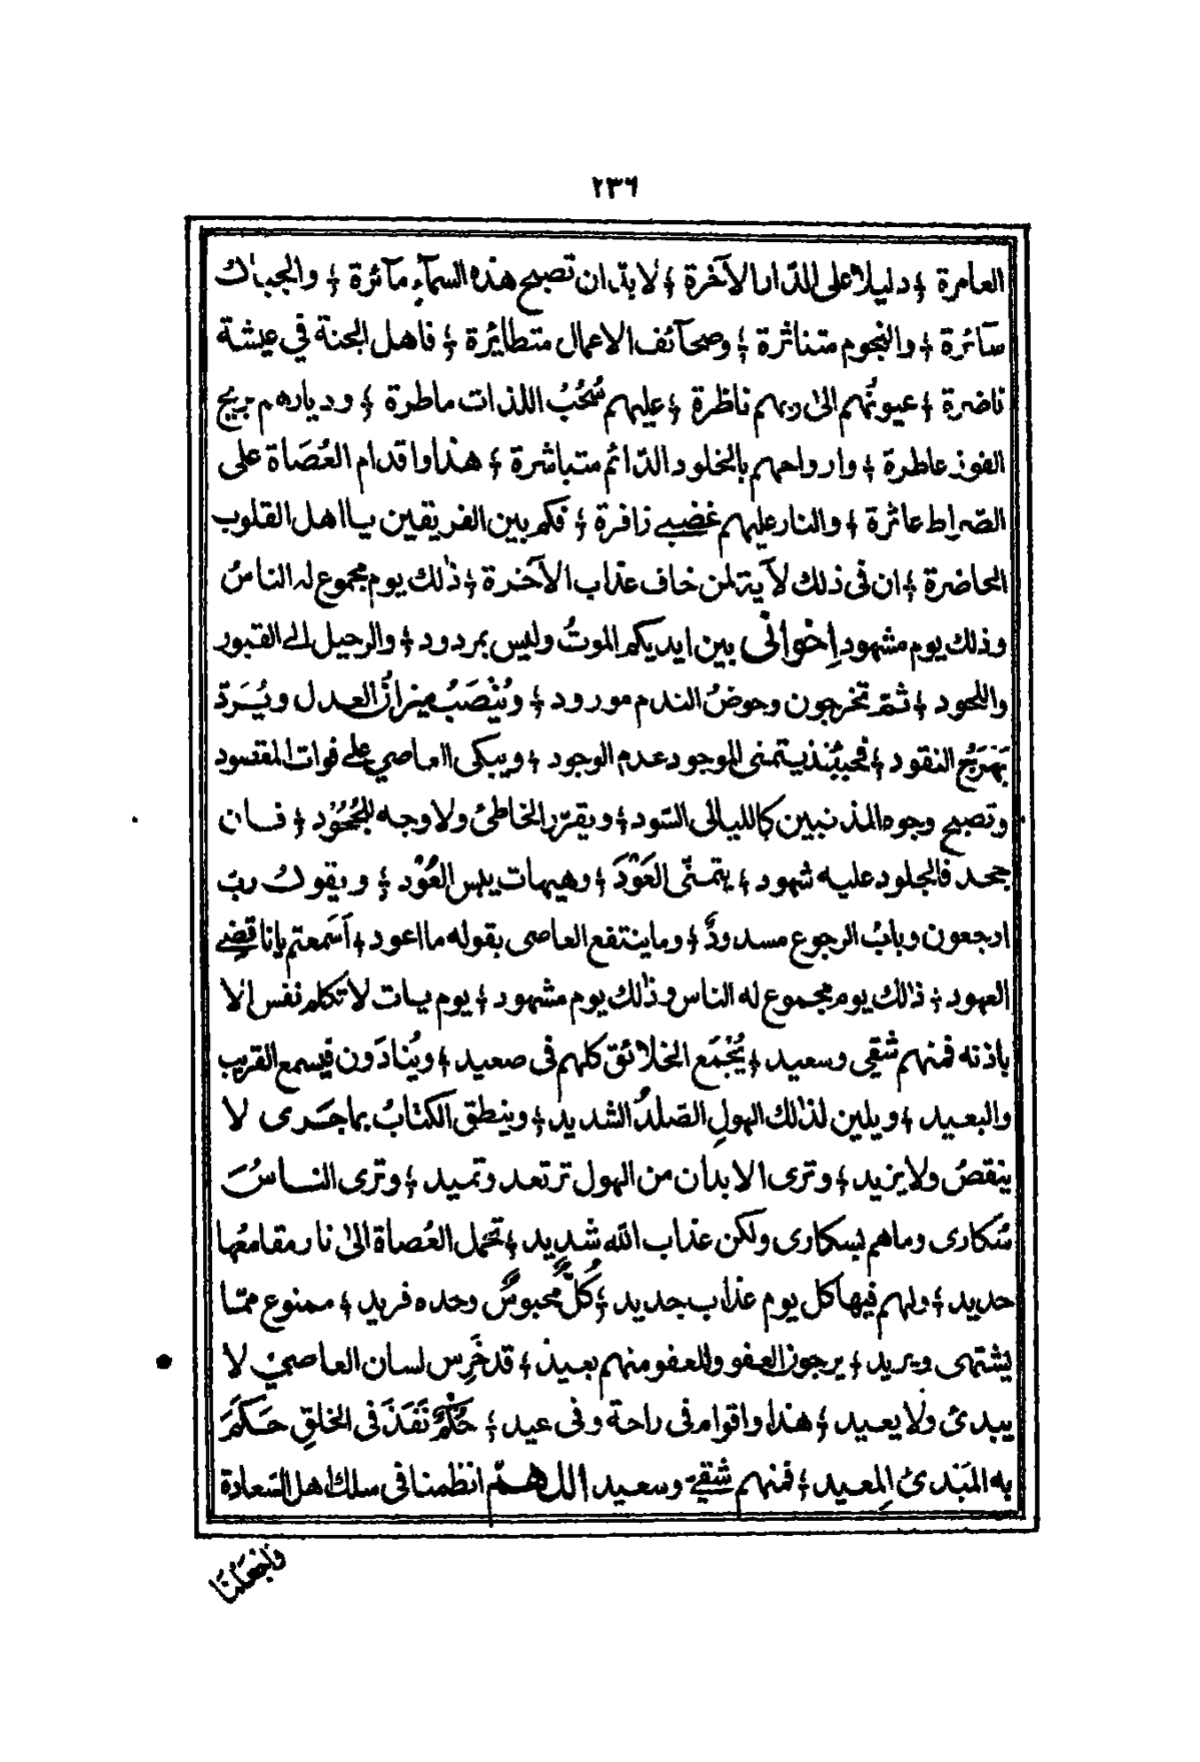 ٢٣٦
العامرة ؛ دليلا على للدار الآخرة ؛ لا بد ان تصبح هذه السمآء مآئرة ؛ والجبال
سآئرة ؛ والنجوم متناثرة ؛ وصحآئف الاعمال متطائرة ؛ فاهل الجنة في عيشة
ناضرة ؛ عيونُهم الى ربهم ناظرة ؛ عليهم سُحُبُ اللذات ماطرة ؛ وديارهم بريح
الفوز عاطرة ؛ وارواحهم بالخلود الدائم متباشرة ؛ هذا واقدام العُصَاة على
الصراط عاثرة ؛ والنار عليهم غضبى زافرة ؛ فكم بين الفريقين يا اهل القلوب
الحاضرة ؛ ان فى ذلك لآية لمن خاف عذاب الآخرة ؛ ذلك يوم مجموع له الناسُ
وذلك يوم مشهود اِخوانى بين ايديكم الموتُ وليس بمردود ؛ والرحيل الى القبور
واللحود ؛ ثم تخرجون وحوضُ الندم مورود ؛ ويُنْصَبُ ميزانُ العدل ويُرَدّ
بَهْرَجُ النقود ؛ فحينئذ يتمنى الموجود عدم الوجود ؛ ويبكى العاصي على فوات المقصود
وتصبح وجوه المذنبين كالليالى السّود ؛ ويقرّر الخاطئ ولا وجه للجُحُوْد ؛ فان
جحد فالجلود عليه شهود ؛ يتمنّى العَوْدَ ؛ وهيهات يبس العُوْد ؛ ويقول رب
ارجعون وبابُ الرجوع مسدودٌ ؛ وما ينتفع العاصى بقوله ما اعود ؛ أسَمعتم يا ناقضى
العهود ؛ ذالك يوم مجموع له الناس وذالك يوم مشهود ؛ يوم يات لا تكلم نفس الا
باذنه فمنهم شقي وسعيد ؛ يُجْمَع الخلائق كلهم فى صعيد ؛ ويُنادَون فيسمع القريب
والبعيد ؛ ويلين لذالك الهولِ الصّلدُ الشديد ؛ وينطق الكتابُ بما جَرى لا
ينقصُ ولا يزيد ؛ وترى الابدان من الهول ترتعد وتميد ؛ وترى الناسَ
سُكارى وما هم بسكارى ولكن عذاب الله شديد ؛ تحمل العُصاة الى نار مقامعُها
حديد ؛ ولهم فيها كل يوم عذاب جديد ؛ كُلٌّ محبوسٌ وحده فريد ؛ ممنوع ممّا
يشتهى ويريد ؛ يرجون العفو والعفو منهم بعيد ؛ قد خَرِس لسان العاصي لا
يبدئ ولا يعيد ؛ هذا واقوام فى راحة وفى عيد ؛ حُكْمٌ نَفَذَ فى الخلقِ حَكَمَ
به المَبْدئ المعيد ؛ فمنهم شقيٌ وسعيد اللهم انظمنا فى سلك اهل السّعادة
وَاجْعَلْنَا